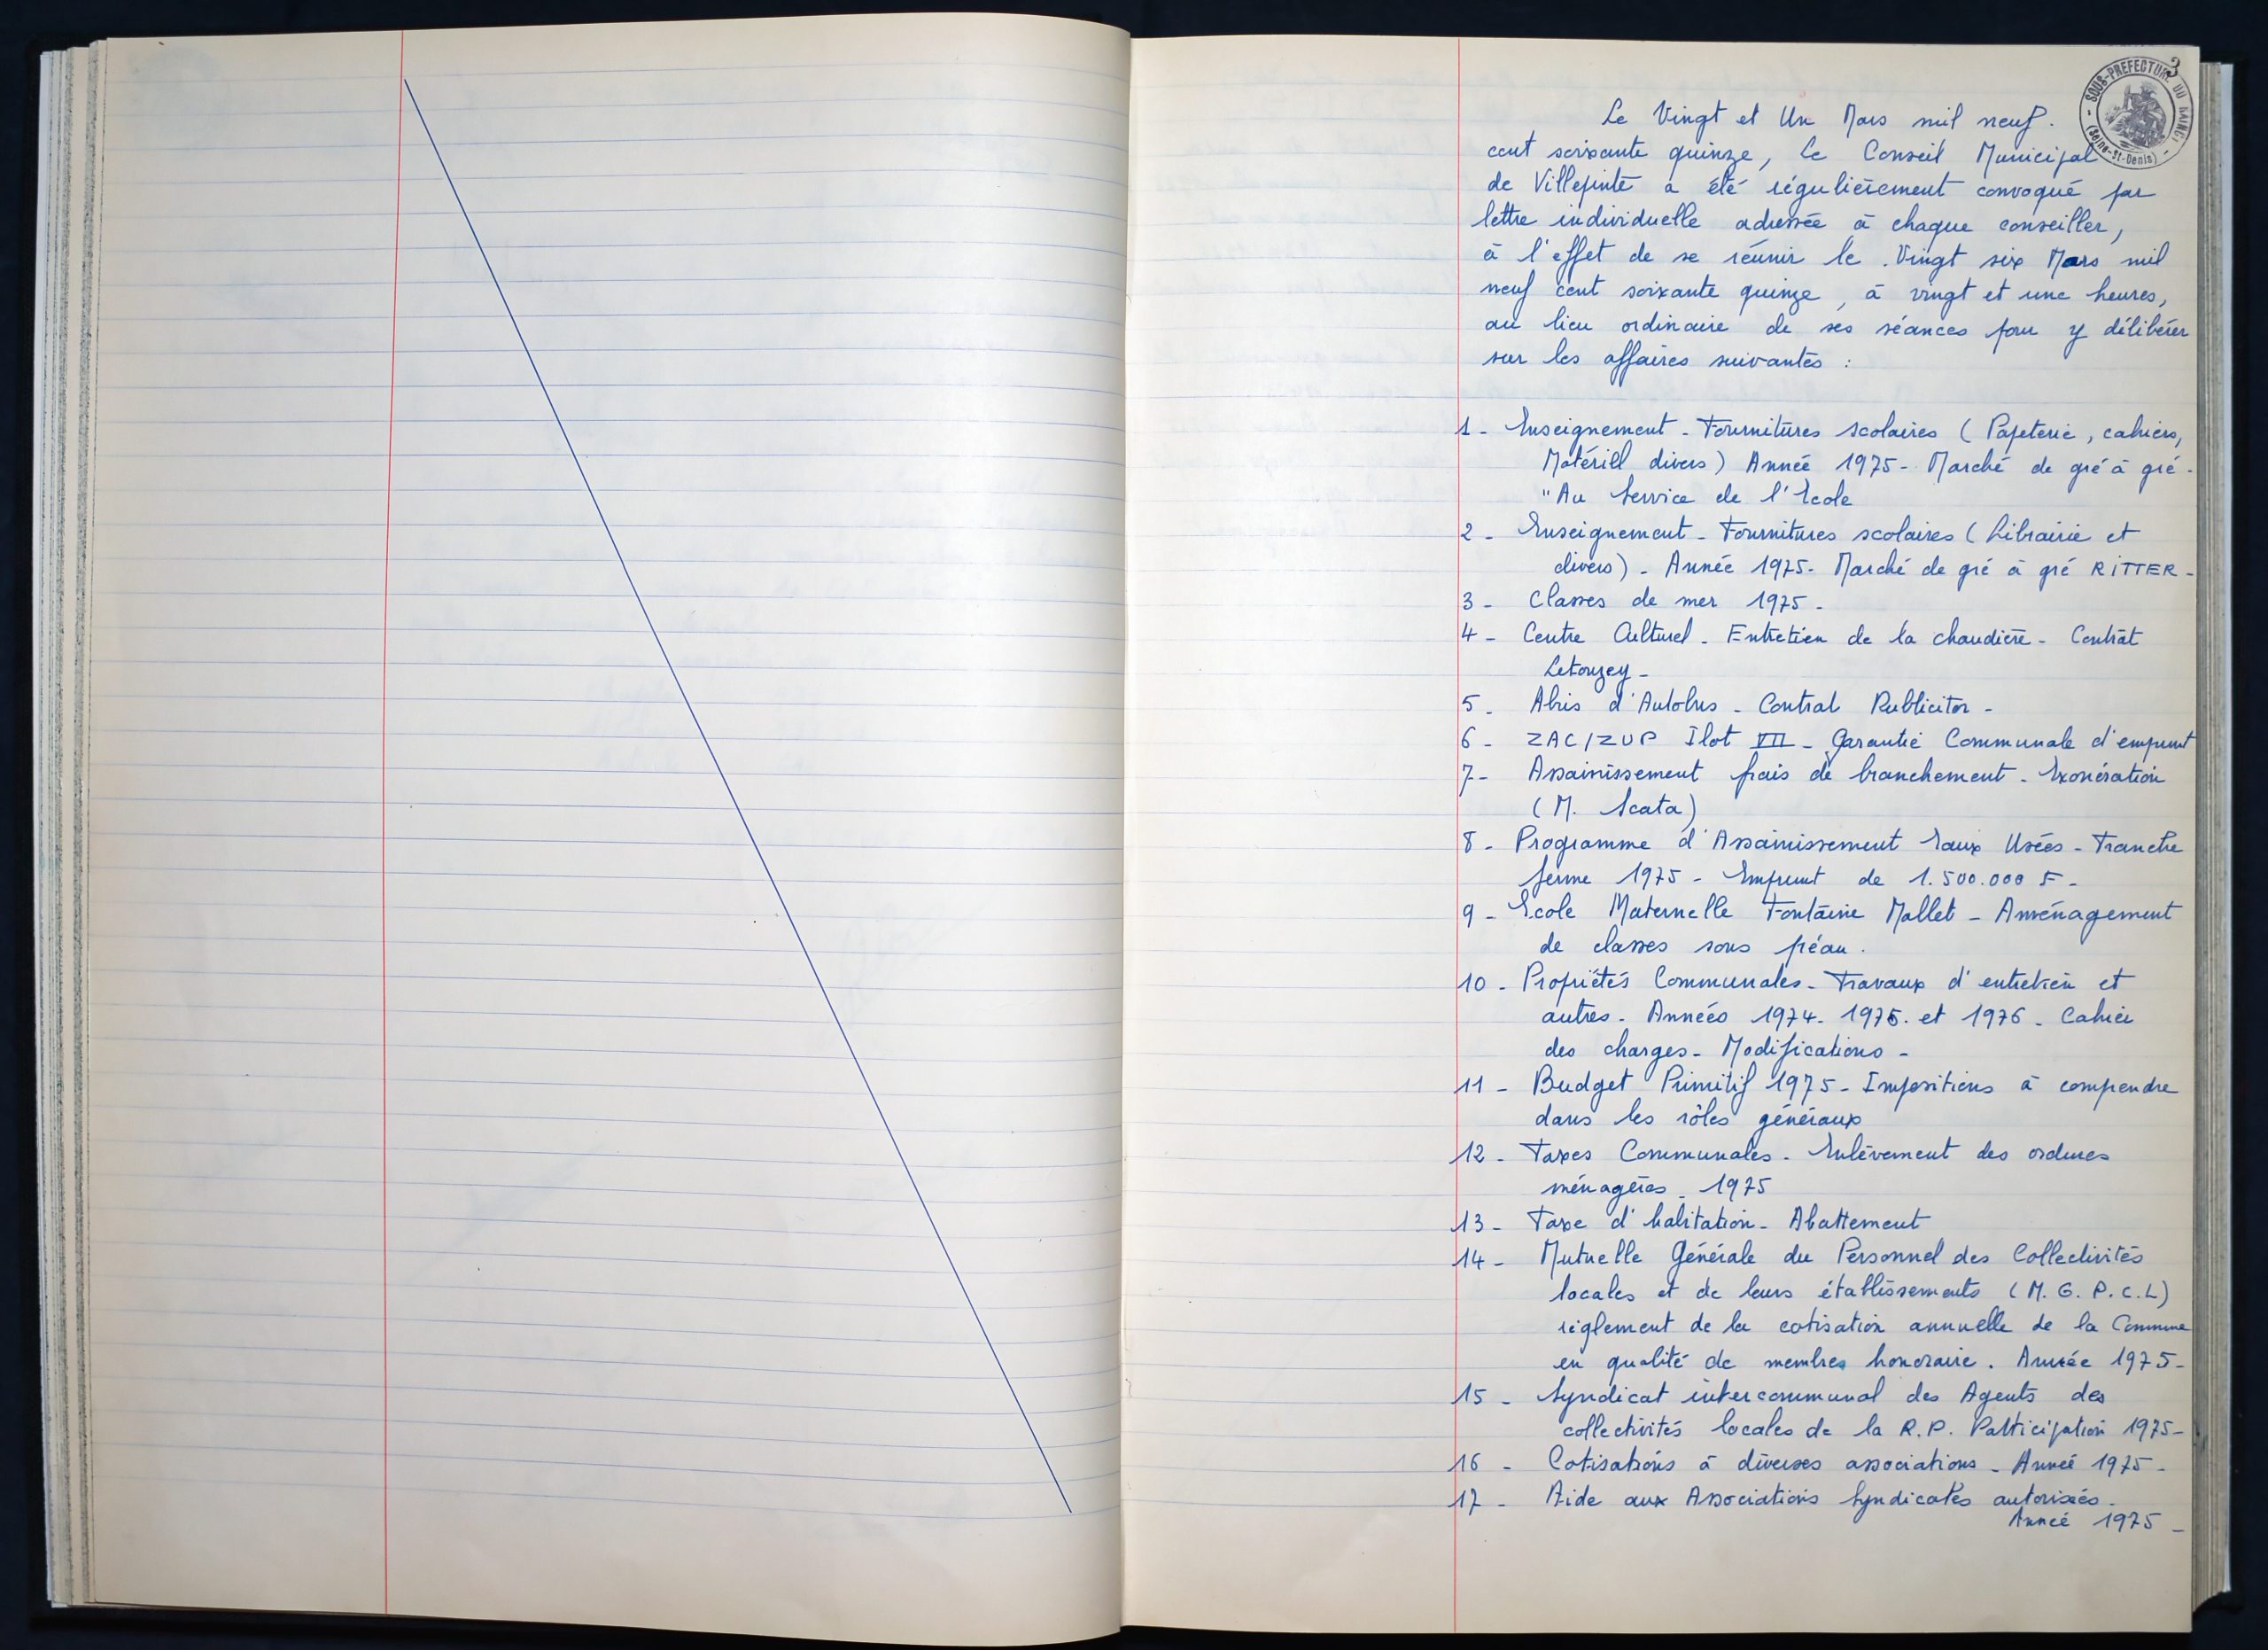 3
SOUS-PREFECTURE DU RAINCY
(Seine-St-Denis)
Le Vingt et Un Mars mil neuf.
cent soixante quinze, le Conseil Municipal
de Villepinte a été régulièrement convoqué par
lettre individuelle adressée à chaque conseiller,
à l'effet de se réunir le Vingt six Mars mil
neuf cent soixante quinze, à vingt et une heures,
au lieu ordinaire de ses séances pour y délibérer
sur les affaires suivantes :
1 - Enseignement - Fournitures scolaires (Papeterie, cahiers,
Matériel divers) Année 1975 - Marché de gré à gré -
"Au Service de l'Ecole
2 - Enseignement - Fournitures scolaires (Librairie et
divers) - Année 1975 - Marché de gré à gré RITTER -
3 - Classes de mer 1975 -
4 - Centre Culturel - Entretien de la chaudière - Contrat
Letouzey -
5 - Abris d'Autobus - Contrat Publicitor -
6 - ZAC/ZUP Ilot VII - Garantie Communale d'emprunt
7 - Assainissement frais de branchement - Exonération
(M. Scata)
8 - Programme d'Assainissement Eaux Usées - Tranche
ferme 1975 - Emprunt de 1.500.000 F -
9 - Ecole Maternelle Fontaine Mallet - Aménagement
de classes sous préau.
10 - Propriétés Communales - Travaux d'entretien et
autres - Années 1974 - 1975 - et 1976 - Cahier
des charges - Modifications -
11 - Budget Primitif 1975 - Impositions à comprendre
dans les rôles généraux
12 - Taxes Communales - Enlèvement des ordures
ménagères - 1975
13 - Taxe d'habitation - Abattement
14 - Mutuelle Générale du Personnel des Collectivités
locales et de leurs établissements (M. G. P. C. L)
règlement de la cotisation annuelle de la Commune
en qualité de membres honoraire. Année 1975 -
15 - Syndicat intercommunal des Agents des
collectivités locales de la R.P. Participation 1975 -
16 - Cotisations à diverses associations - Année 1975 -
17 - Aide aux Associations Syndicales autorisées -
Année 1975 -